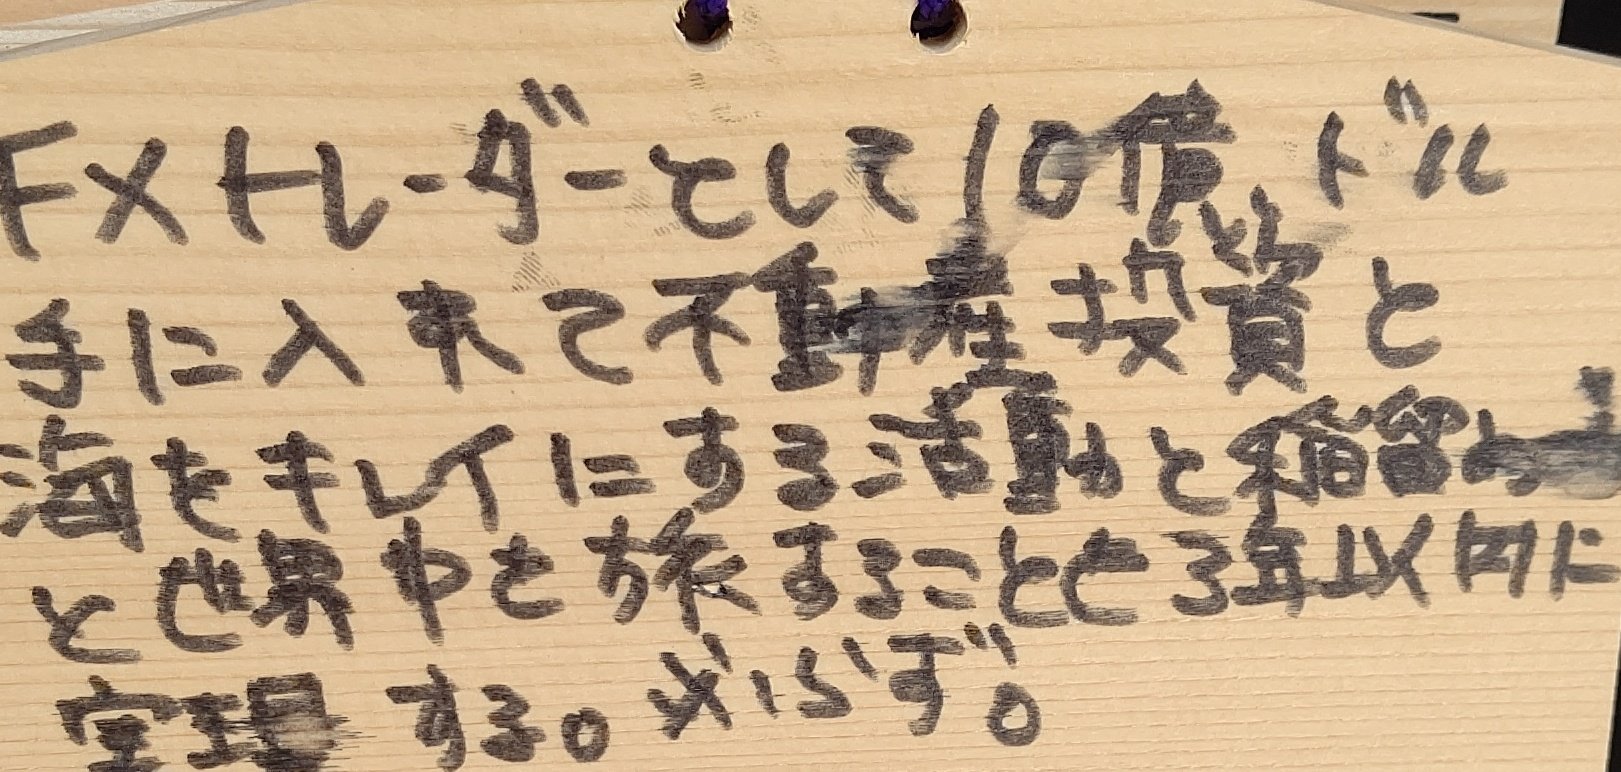 FXトレーダーとして10億ドル
手に入れて不動産投資と
海をキレイにする活動と
と世界中を旅することを3年以内に
実現する。必らず。